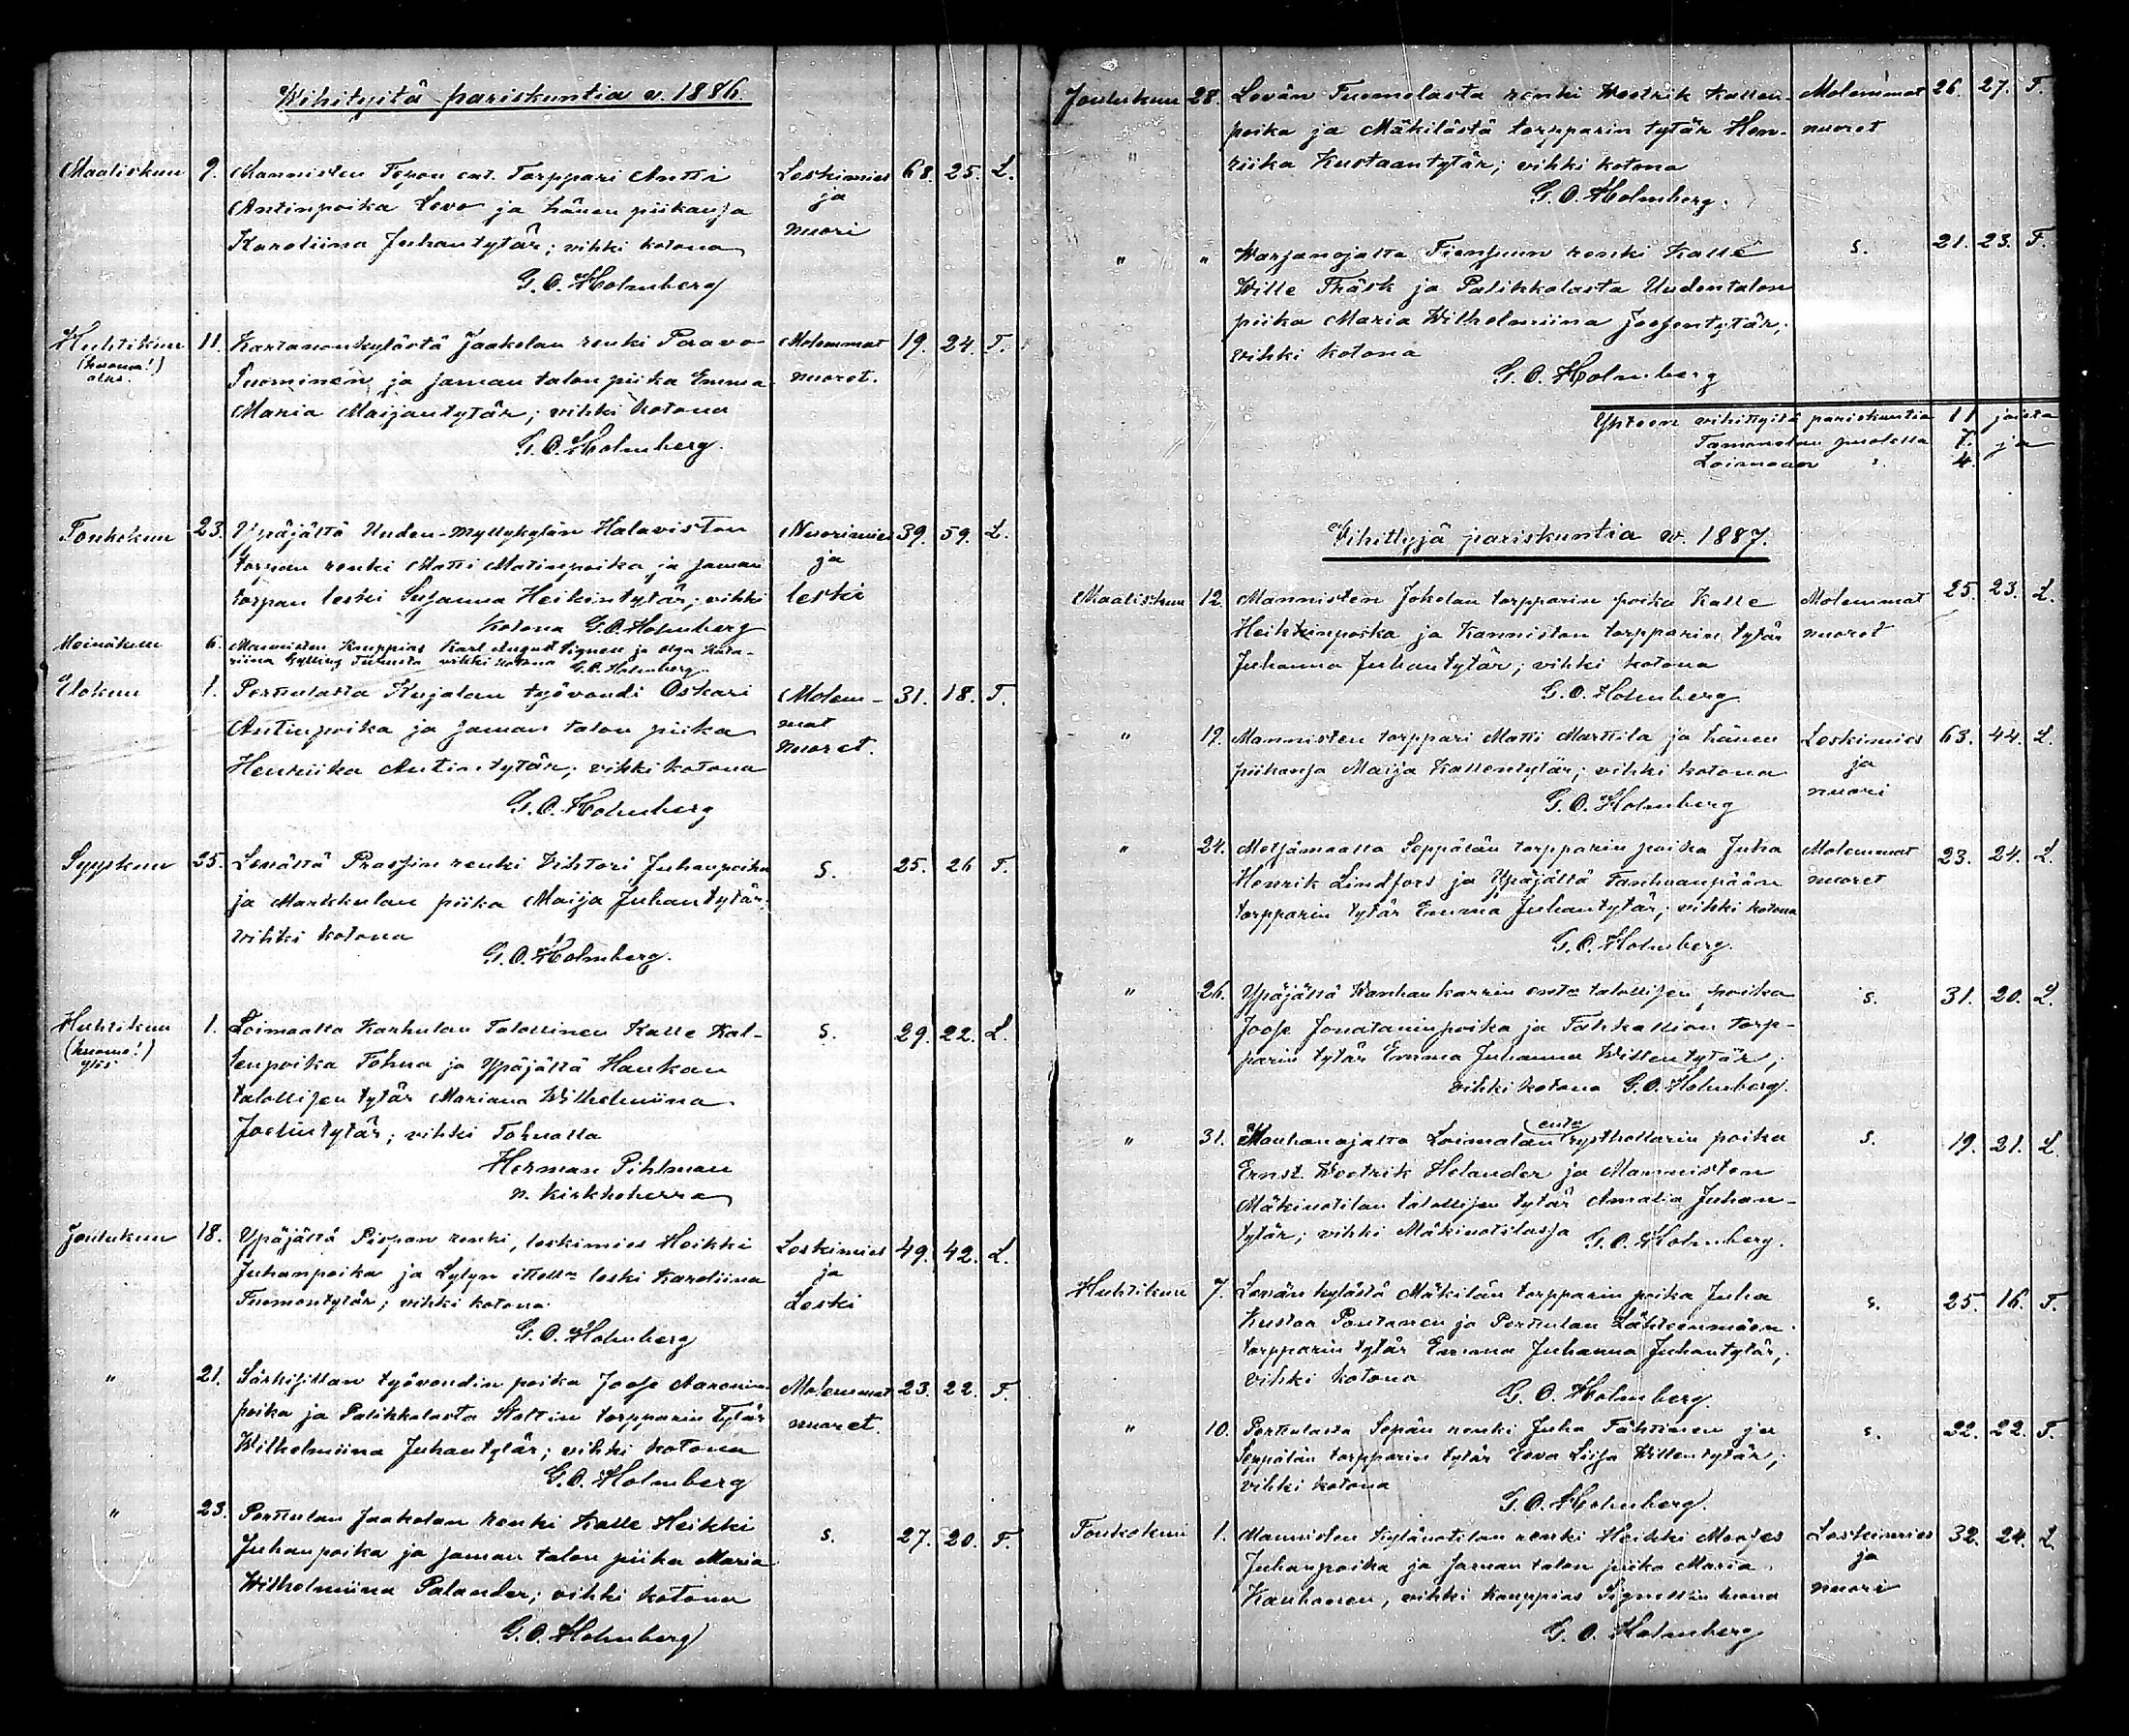 Wihityitä pariskuntia v. 1886.
Maaliskuu 9. Mannisten Tepon ent. Torppari Antti Leskimies 68. 25. L.
Antinpoika Levo ja hänen piikansa ja
Karoliina Juhantytär; vihki kotona nuori
G. O. Holmberg
Huhtikuu 11. Kartanonkylästä Jaakolan renki Paavo Molemmat 19. 24. T.
(huomaa!)
alas.
Tuominen ja saman talon piika Emma nuoret.
Maria Maijantytär; vihki kotona
G. O. Holmberg.
Toukokuu 23. Ypäjältä Uuden-Myllykylän Halaviston Nuorimies 39. 59. L.
torpan renki Matti Matinpoika ja saman ja
torpan leski Susanna Heikintytär; vihki leski
kotona G. O. Holmberg
Heinäkuu 6. Mannisten Kauppias Karl August Signell ja Olga Kata-
riina Gylling Turusta vihki kotona G. O. Holmberg.
Elokuu 1. Perttulasta Kujalan työvouti Oskari Molem- 31. 18. T.
Antinpoika ja saman talon piika mat
Henriika Antintytär; vihki kotona nuoret.
G. O. Holmberg
Syyskuu 25. Levältä Prassin renki Vihtori Juhanpoika S. 25. 26 T.
ja Markkulan piika Maija Juhantytär.
vihki kotona
G. O. Holmberg.
Huhtikuu 1. Loimaalta Karhulan Talollinen Kalle Kal- S. 29. 22. L.
(huomaa!)
ylös
lenpoika Tohna ja Ypäjältä Haukan
talollisen tytär Mariana Wilhelmiina
Joelintytär; vihki Tohnalla
Herman Pihlman
v. kirkkoherra
Joulukuu 18. Ypäjältä Pispan renki, leskimies Heikki Leskimies 49. 42. L.
Juhanpoika ja Lylyn leski Karoliina ja
Tuomontytär; vihki kotona Leski
G. O. Holmberg
" 21. Särkisillan työvoudin poika Joose Aaronin- Molemmat 23. 22. T.
poika ja Palikkalasta Stoltin torpparin tytär nuoret.
Wilhelmiina Juhantytär; vihki kotona
G. O. Holmberg
" 23. Perttulan Jaakolan renki Kalle Heikki S. 27. 20. T.
Juhanpoika ja saman talon piika Maria
Wilhelmiina Palander; vihki kotona
G. O. Holmberg
Joulukuu 28. Levän Tuomolasta renki Westrik Kallen- Molemmat 26. 27. T.
poika ja Mäkilästä torpparin tytär Hen- nuoret
" riika Kustaantytär; vihki kotona
G. O. Holmberg.
" " Warsanojalta Tiensuun renki Kalle S. 21. 23. T.
Wille Thäsk ja Palikkalasta Uudentalon
piika Maria Wilhelmiina Joosentytär,
vihki kotona
G. O. Holmberg
Yhteen vihittyitä pariskuntia 11 joista
Tammelan puolella 7. ja
Loimaan ". 4.
Vihittyjä pariskuntia v. 1887.
Maaliskuu 12. Mannisten Jokelan torpparin poika Kalle Molemmat 25. 23. L.
Heikkinpoika ja Kanniston torpparin tytär nuoret
Juhanna Juhantytär; vihki kotona
G. O. Holmberg.
" 19. Mannisten torppari Matti Marttila ja hänen Leskimies 63. 44. L.
piikansa Maija Kallentytär; vihki kotona ja
G. O. Holmberg nuori
" 24. Metsämaalta Seppälän torpparin poika Juha Molemmat 23. 24. L.
Henrik Lindfors ja Ypäjältä Tanhuanpään nuoret
torpparin tytär Emma Juhantytär; vihki kotona
G. O. Holmberg.
" 26. Ypäjältä Wanhankarrin talollisen poika S. 31. 20. L.
Joose Jonataninpoika ja Tahkallion torp-
parin tytär Emma Juhanna Willentytär;
vihki kotona G. O. Holmberg.
" 31. Manhanojalta Loimalan ento rysthollarin poika S. 19. 21. L.
Ernst Wostrik Helander ja Manniston
Mäkinotilan talollisen tytär Amalia Juhan-
tytär; vihki Mäkinotilassa G. O. Holmberg.
Huhtikuu 7. Levän kylästä Mäkilän torpparin poika Juha S. 25. 16. T.
Kustaa Pontanen ja Perttulan Lähteenmäen
torpparin tytär Emma Juhanna Juhantytär;
vihki kotona
G. O. Holmberg.
" 10. Perttulasta Sepän renki Juha Tähtinen ja S. 22. 22. T.
Seppälän torpparin tytär Eeva Liisa Willentytär;
vihki kotona
G. O. Holmberg.
Toukokuu 1. Mannisten Kylänotilan renki Heikki Moses Leskimies 32. 24. L.
Juhanpoika ja saman talon piika Maria ja
Kanhanen, vihki kauppias Signellin luona nuori
G. O. Holmberg